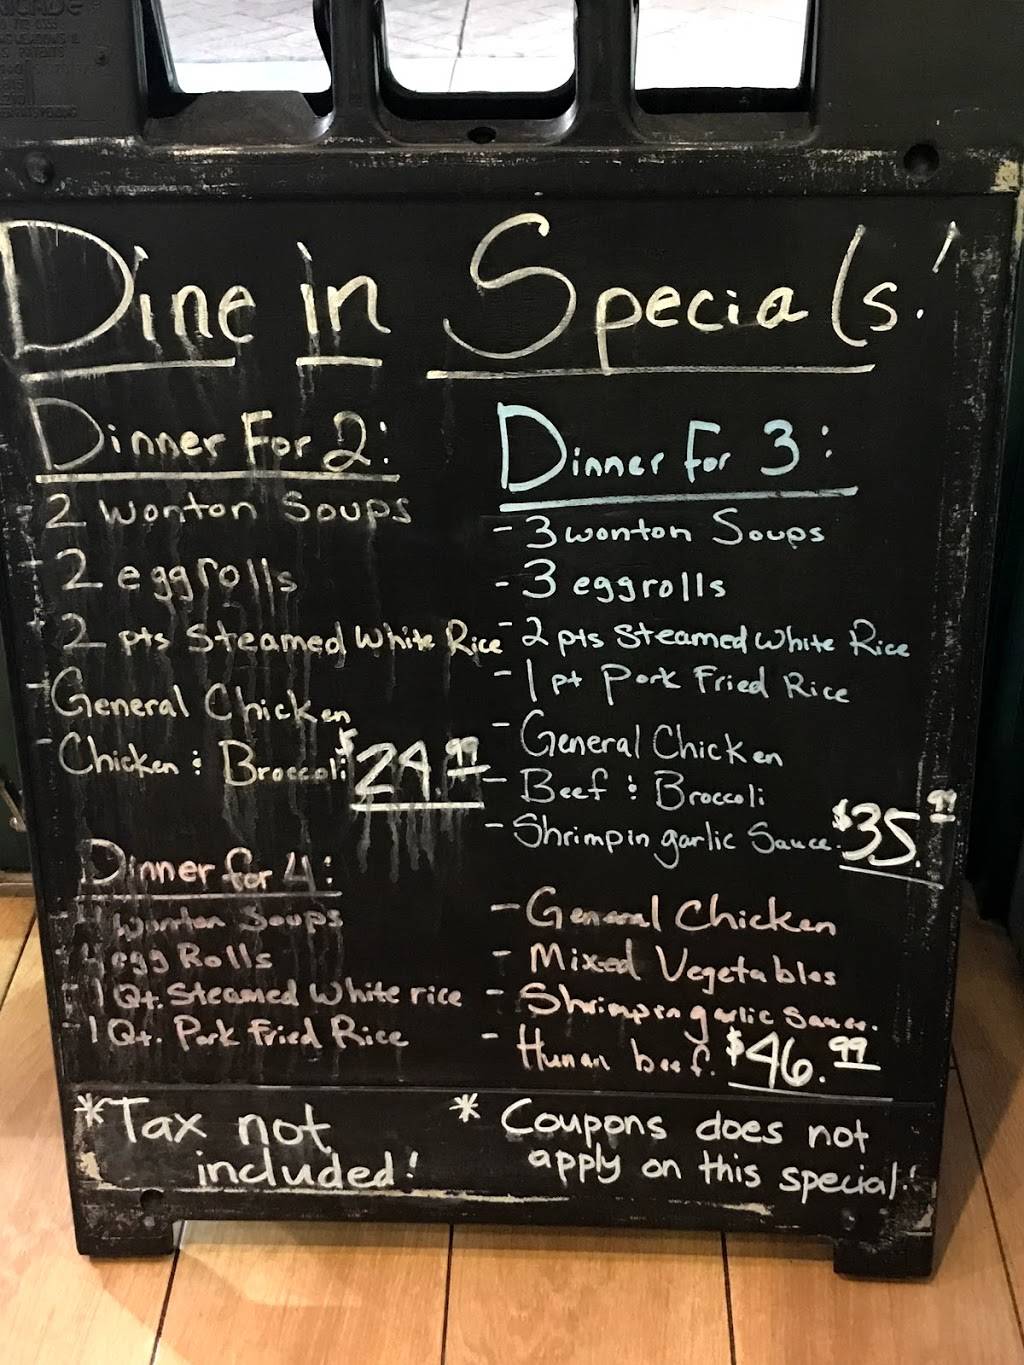 Dine in Specials!
Dinner For 2:
- 2 wonton Soups
- 2 eggrolls
- 2 pts Steamed White Rice
- General Chicken
- Chicken & Broccoli $24.99
Dinner For 3:
- 3 wonton Soups
- 3 eggrolls
- 2 pts Steamed White Rice
- 1 pt Pork Fried Rice
- General Chicken
- Beef & Broccoli
- Shrimp in garlic Sauce. $35.99
Dinner for 4:
- 4 Wonton Soups
- 4 egg Rolls
- 1 Qt. Steamed White rice
- 1 Qt. Pork Fried Rice
- General Chicken
- Mixed Vegetables
- Shrimp in garlic sauce.
- Hunan beef. $46.99
* Tax not
included!
* Coupons does not
apply on this special!